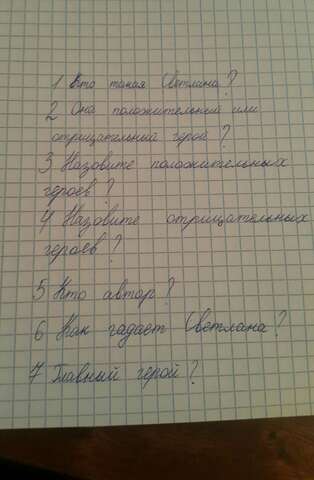 1 Кто такая Светлина?
2 Она положительный или
отрицательный герой?
3 Назовите положительных
героев?
4 Назовите отрицательных
героев?
5 Кто автор?
6 Как гадает Светлана?
7 Главный герой?